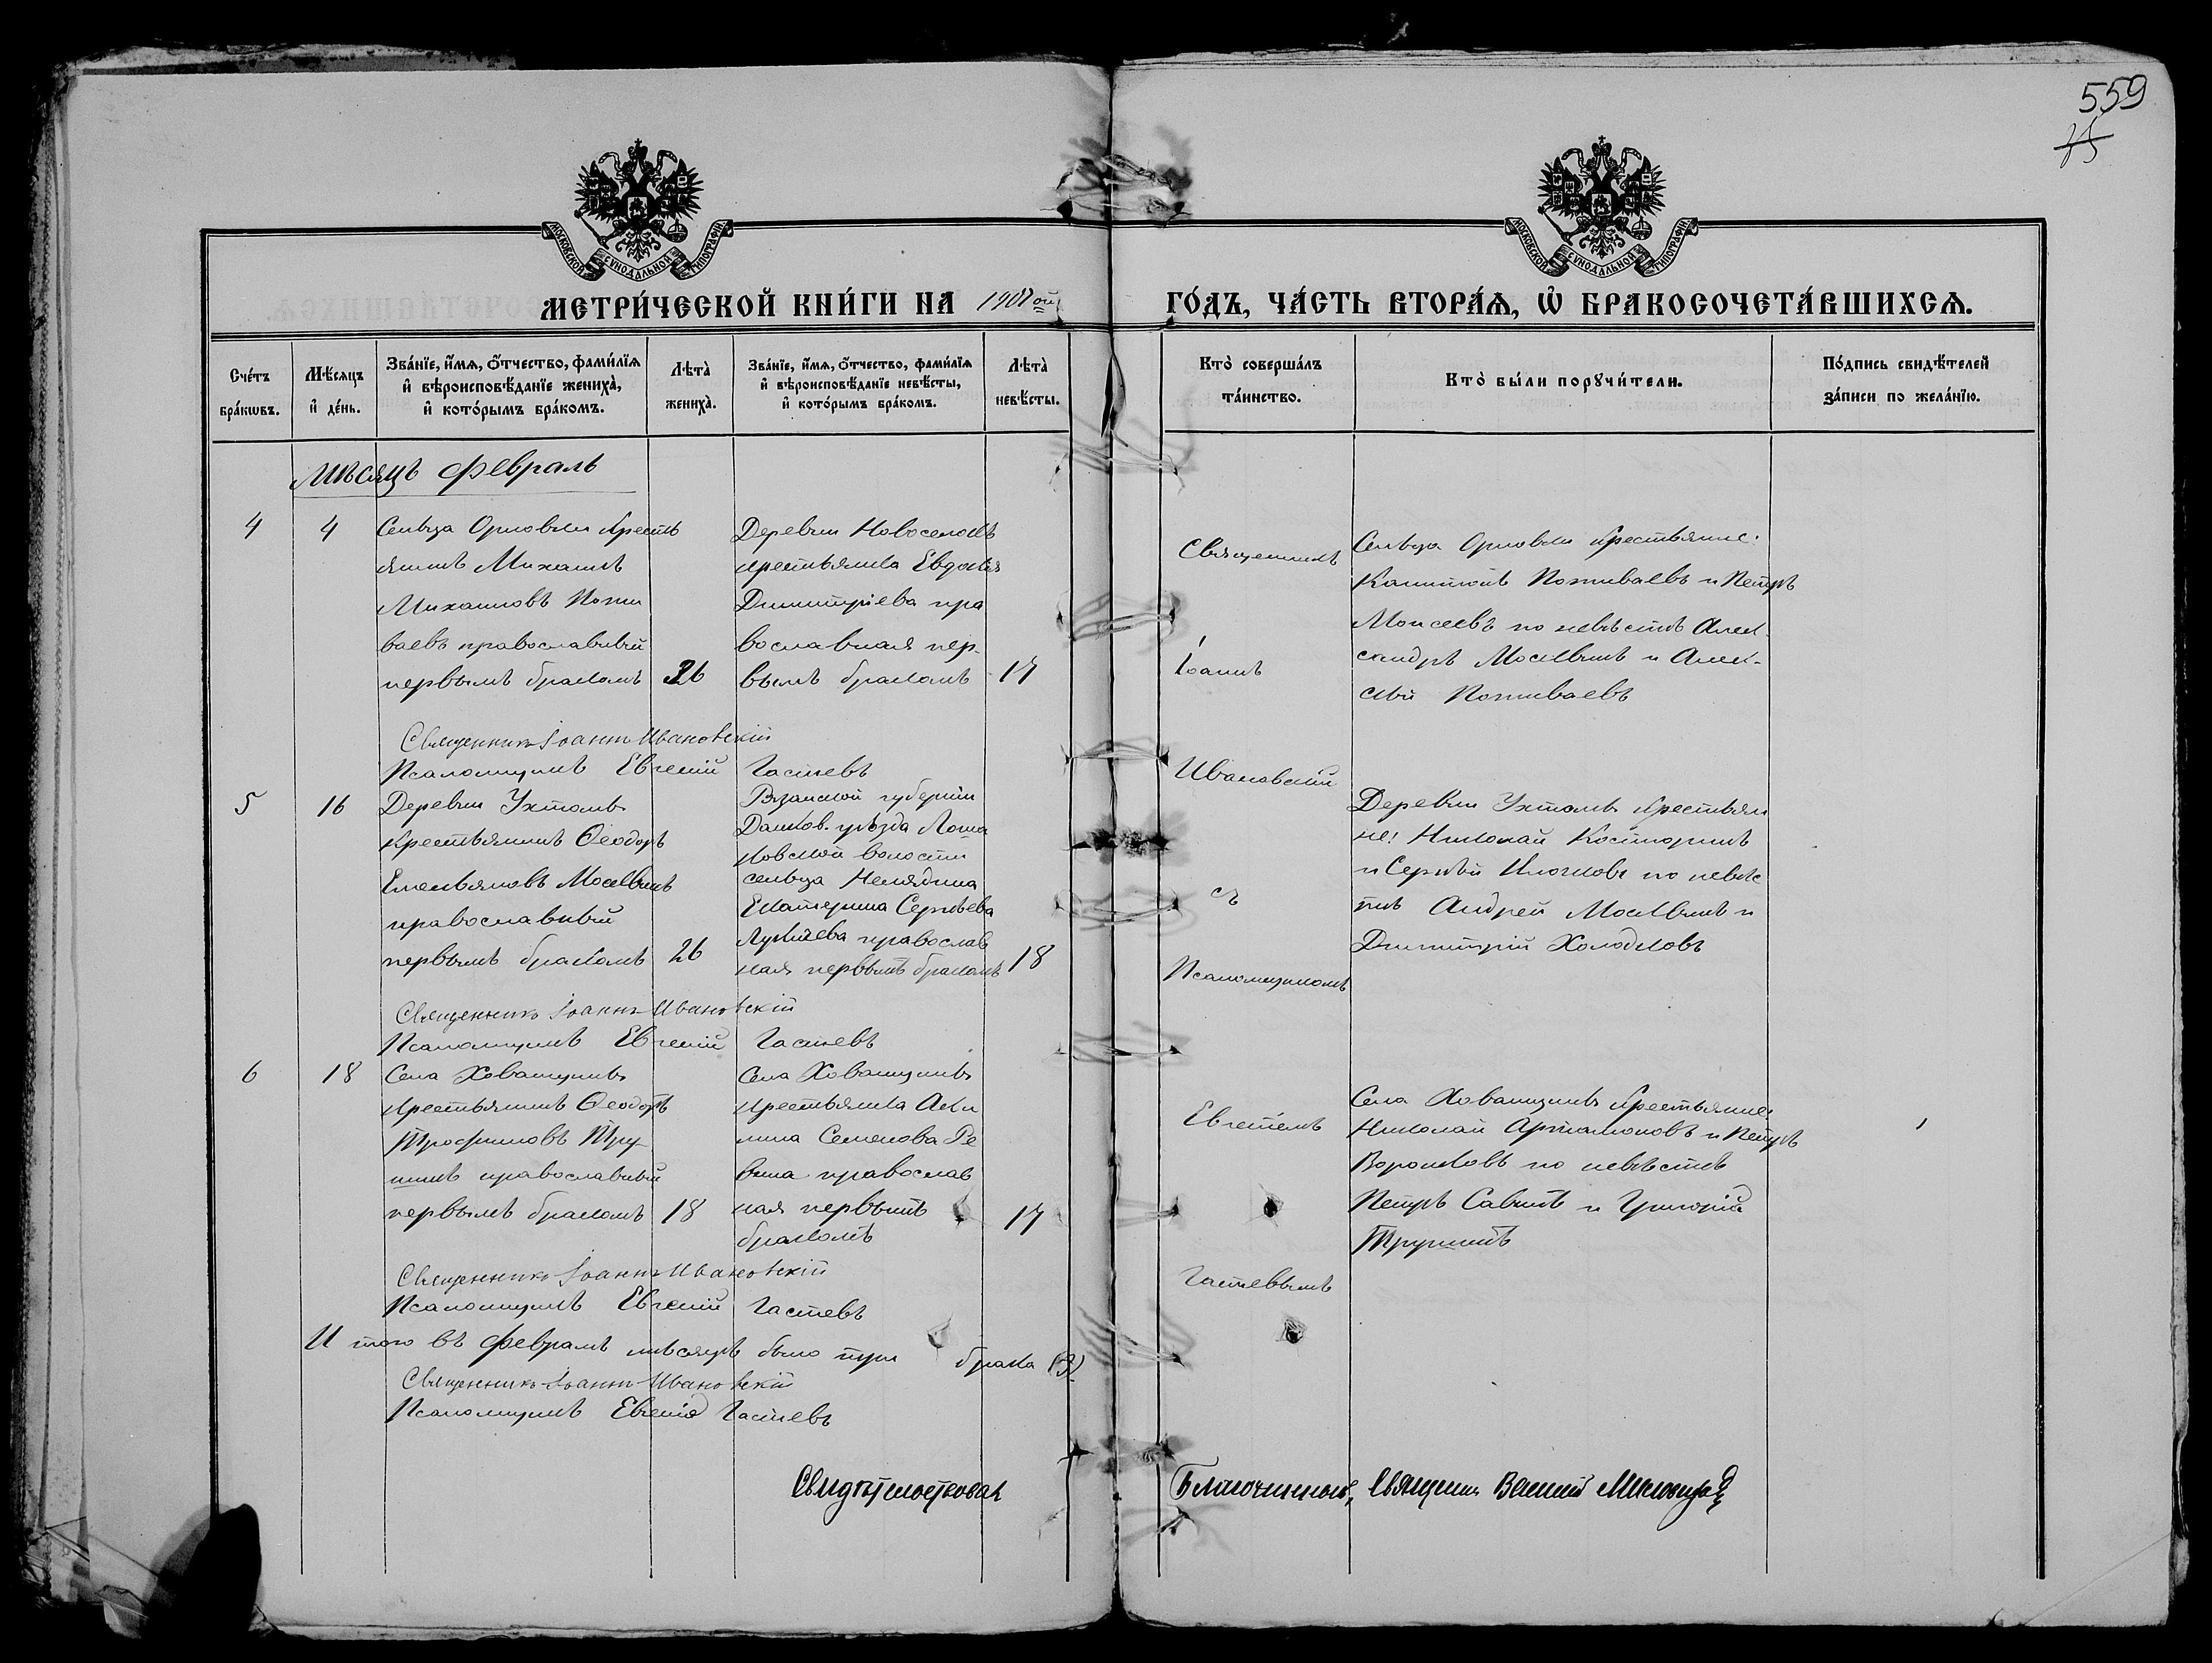 559
75
МОСКОВСКОЙ СѴНОДАЛЬНОЙ ТИПОГРАФІИ
МОСКОВСКОЙ СѴНОДАЛЬНОЙ ТИПОГРАФІИ
МЕТРИ́ЧЕСКОЙ КНИ́ГИ НА 1901 ой
ГО́ДЪ, ЧА́СТЬ ВТОРА́Ѧ, Ѽ БРАКОСОЧЕТА́ВШИХСѦ.
Сче́тъ бра́кѡвъ.
Мѣ́сяцъ и҆ де́нь.
Зва́нїе, и҆́мѧ, ѻ҆́тчество, фами́лїѧ и҆ вѣроисповѣ́данїе жениха̀, и҆ кото́рымъ бра́комъ.
Лѣта̀ жениха̀.
Зва́нїе, и҆́мѧ, ѻ҆́тчество, фами́лїѧ и҆ вѣроисповѣ́данїе невѣ́сты, и҆ кото́рымъ бра́комъ.
Лѣта̀ невѣ́сты.
Кто̀ соверша́лъ та́инство.
Кто̀ бы́ли порꙋчи́тели.
По́дпись свидѣ́телей за́писи по жела́нїю.
Мѣсяцъ февраль
4
4
Сельца Орловки кресть
янинъ Михаилъ
Михаиловъ Пожи
ваевъ православный
первымъ бракомъ
26
Деревни Новоселокъ
крестьянка Евдокія
Димитріева пра
вославная пер-
вымъ бракомъ
17
Священникъ
Іоаннъ
Ивановскій
съ
Псаломщикомъ
Евгеніемъ
Гастевымъ
Сельца Орловки крестьяне:
Капитонъ Поживаевъ и Петръ
Моисеевъ по невѣстѣ Алек-
сандръ Москвинъ и Алек-
сѣй Поживаевъ
Священникъ Іоаннъ Ивановскій
Псаломщикъ Евгеній Гастевъ
5
16
Деревни Ухтомъ
крестьянинъ Ѳеодоръ
Емельяновъ Москвинъ
православный
первымъ бракомъ
26
Рязанской губерніи
Данков. уѣзда Лоша
ковской волости
сельца Нелядина
Екатерина Сергѣева
православ
ная первымъ бракомъ
18
Деревни Ухтомъ крестьян
не: Николай Косторинъ
и Сергѣй по невѣс
тѣ Андрей Москвинъ и
Димитрій Холодковъ
Священникъ Іоаннъ Ивановскій
Псаломщикъ Евгеній Гастевъ
6
18
Села Ховащинъ
крестьянинъ Ѳеодоръ
Трофимовъ Тру
шинъ православный
первымъ бракомъ
18
Села Ховащинъ
крестьянка Аки
лина Семенова Ре
вина православ
ная первымъ
бракомъ
17
Села Ховащинъ крестьяне:
Николай Артамоновъ и Петръ
Воронковъ по невѣстѣ
Петръ Савинъ и Григорій
Трушинъ
Священникъ Іоаннъ Ивановскій
Псаломщикъ Евгеній Гастевъ
И того въ февралѣ мѣсяцѣ было три брака (3)
Священникъ Іоаннъ Ивановскій
Псаломщикъ Евгеній Гастевъ
Свидѣтельствовалъ
Благочинный, Священн. Василій